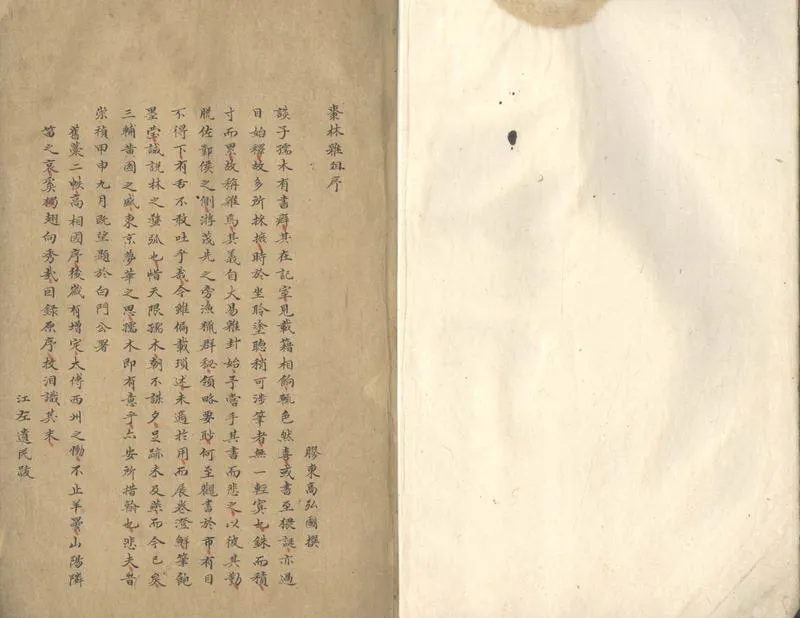 棗林雜俎序
膠東高弘圖撰
談子孺木有書癖其在記室見載籍相餉輒色然喜或書至猥誕亦過
目始釋故多所採摭時於坐聆塗聽稍可涉筆者無一輕寘也銖而積
寸而累故稱雜焉其義自大易雜封始予嘗手其書而悲之以彼其勤
脫佐鄴侯之側游茂先之旁漁獵群秘領略要眇何至觀書於市有目
不得下有舌不敢吐乎哉今雖偏載瑣述未適於用而展卷澄鮮筆飽
墨瑩誠說林之蝥弧也惜天限孺木朝不謀夕足跡未及燕而今已矣
三輔黃圖之盛東京夢華之思孺木即有意乎亦安所措翰也悲夫昔
崇禎甲申九月既望題於白門公署
舊藁二帙高相國序後歲有增定太傅西州之慟不止羊曇山陽隣
笛之哀奚獨翅向秀哉因錄原序抆泪識其末
江左遺民跋